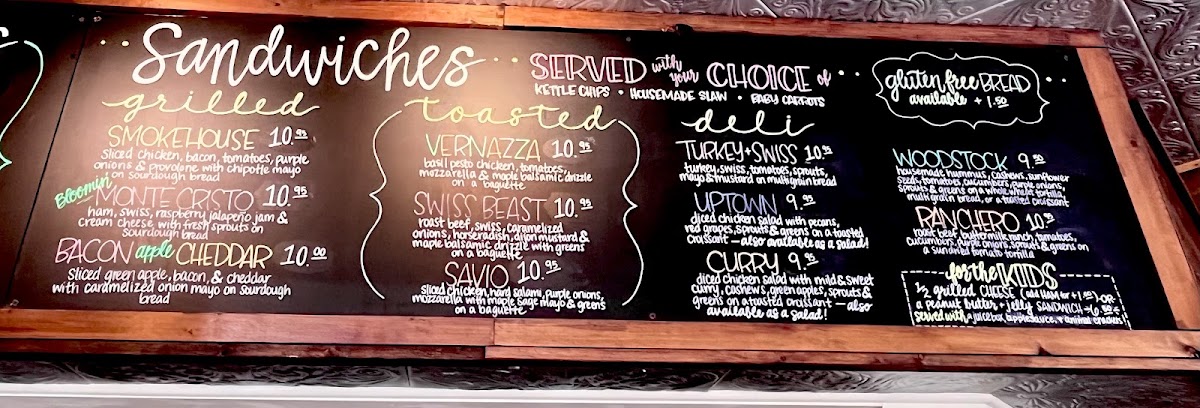 Sandwiches
SERVED with your CHOICE of
KETTLE CHIPS • HOUSEMADE SLAW • BABY CARROTS
gluten free BREAD
available + 1.50
grilled
SMOKEHOUSE 10.95
sliced chicken, bacon, tomatoes, purple
onions & provolone with chipotle mayo
on sourdough bread
Bloomin' MONTE CRISTO 10.95
ham, swiss, raspberry jalapeño jam &
cream cheese with fresh sprouts on
sourdough bread
BACON apple CHEDDAR 10.00
sliced green apple, bacon, & cheddar
with caramelized onion mayo on sourdough
bread
toasted
VERNAZZA 10.95
basil pesto chicken, tomatoes,
mozzarella & maple balsamic drizzle
on a baguette
SWISS BEAST 10.95
roast beef, swiss, caramelized
onions, horseradish, dijon mustard &
maple balsamic drizzle with greens
on a baguette
SAVIO 10.95
sliced chicken, hard salami, purple onions,
mozzarella with maple sage mayo & greens
on a baguette
deli
TURKEY + SWISS 10.95
turkey, swiss, tomatoes, sprouts,
mayo & mustard on multigrain bread
UPTOWN 9.95
diced chicken salad with pecans,
red grapes, sprouts & greens on a toasted
croissant — also available as a salad!
CURRY 9.95
diced chicken salad with mild & sweet
curry, cashews, green apples, sprouts &
greens on a toasted croissant — also
available as a salad!
WOODSTOCK 9.50
housemade hummus, cashews, sunflower
seeds, tomatoes, cucumbers, purple onions,
sprouts & greens on a whole wheat tortilla,
multigrain bread, or a toasted croissant
RANCHERO 10.95
roast beef, buttermilk ranch, tomatoes,
cucumbers, purple onions, sprouts & greens on
a sundried tomato tortilla
for the KIDS
1/2 grilled CHEESE (add HAM for + 1.00) -OR-
a peanut butter + jelly SANDWICH 6.50
served with a juicebox, applesauce, + animal crackers!